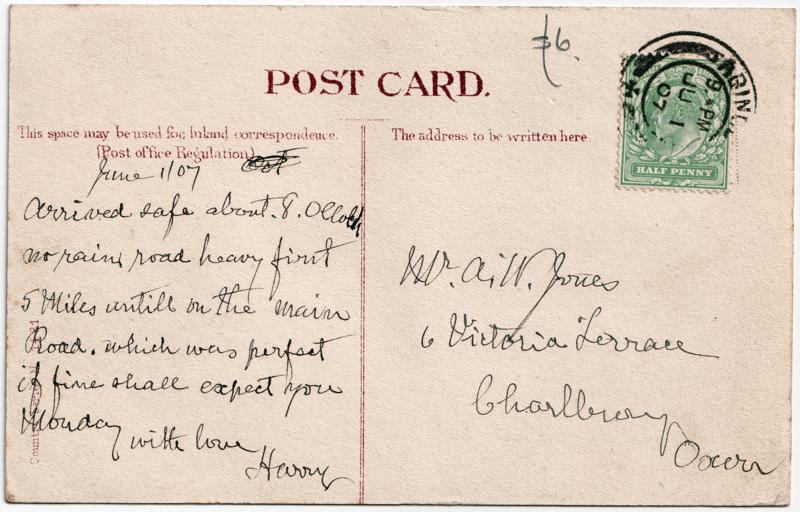 £6.
POST CARD.
This space may be used for Inland correspondence.
(Post office Regulation)
The address to be written here.
ABING
9 45 PM
JU 1
07
HALF PENNY
June 1/07
Arrived safe about. 8. OClock
no rain, road heavy first
5 Miles untill on the main
Road. which was perfect
if fine shall expect you
Monday with love
Harry
Mr. A. W. Jones
6 Victoria Terrace
Charlbury
Oxon